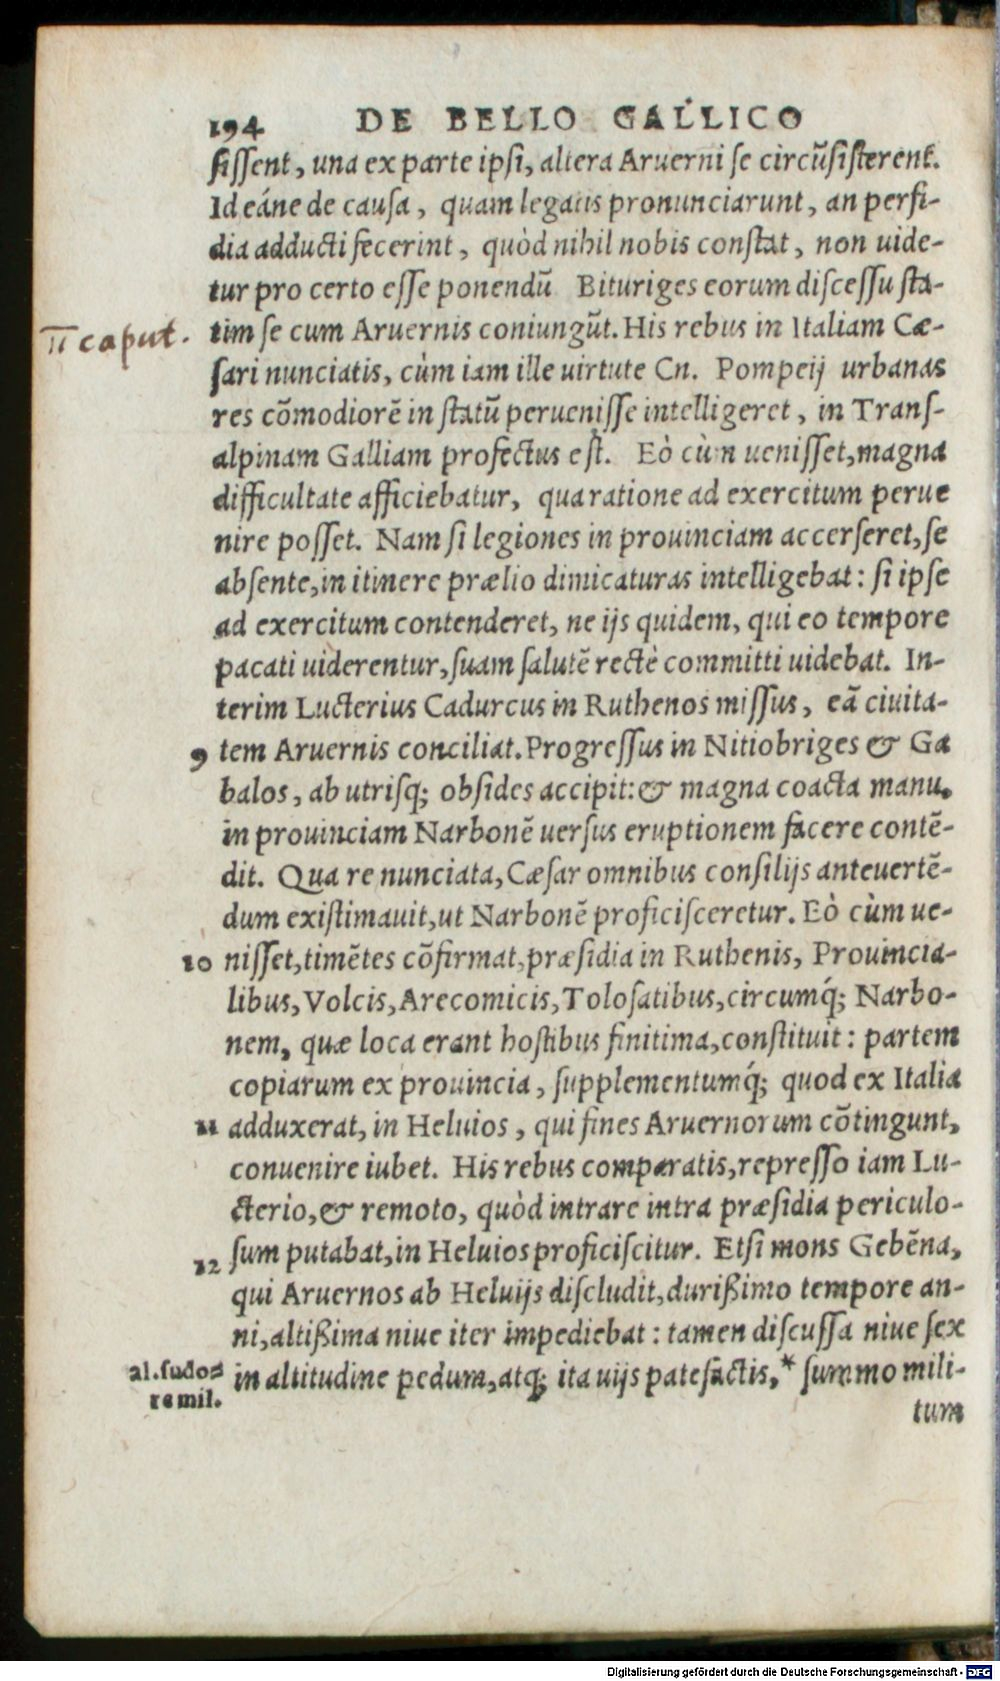 194 DE BELLO GALLICO
ſiſſent, una ex parte ipſi, altera Aruerni ſe circũſiſterent.
Id eáne de cauſa, quam legatis pronunciarunt, an perfi-
dia adducti fecerint, quòd nihil nobis conſtat, non uide-
tur pro certo eſſe ponendũ Bituriges eorum diſceſſu ſta-
π caput.
tim ſe cum Aruernis coniungũt. His rebus in Italiam Cæ-
ſari nunciatis, cùm iam ille uirtute Cn. Pompeij urbanas
res cõmodiorē in ſtatũ perueniſſe intelligeret, in Tranſ-
alpinam Galliam profectus eſt. Eò cùm ueniſſet, magna
difficultate afficiebatur, qua ratione ad exercitum perue
nire poſſet. Nam ſi legiones in prouinciam accerſeret, ſe
abſente, in itinere prælio dimicaturas intelligebat: ſi ipſe
ad exercitum contenderet, ne ijs quidem, qui eo tempore
pacati uiderentur, ſuam ſalutē rectè committi uidebat. In-
terim Lucterius Cadurcus in Ruthenos miſſus, eã ciuita-
9 tem Aruernis conciliat. Progreſſus in Nitiobriges & Ga
balos, ab utriſq; obſides accipit: & magna coacta manu,
in prouinciam Narbonē uerſus eruptionem facere contē-
dit. Qua re nunciata, Cæſar omnibus conſilijs anteuertē-
dum exiſtimauit, ut Narbonē proficiſceretur. Eò cùm ue-
10 niſſet, timētes cõfirmat, præſidia in Ruthenis, Prouincia-
libus, Volcis, Arecomicis, Toloſatibus, circumq́; Narbo-
nem, quæ loca erant hoſtibus finitima, conſtituit: partem
copiarum ex prouincia, ſupplementumq́; quod ex Italia
11 adduxerat, in Heluios, qui fines Aruernorum cõtingunt,
conuenire iubet. His rebus comparatis, repreſſo iam Lu-
cterio, & remoto, quòd intrare intra præſidia periculo-
12 ſum putabat, in Heluios proficiſcitur. Etſi mons Gebēna,
qui Aruernos ab Heluijs diſcludit, durißimo tempore an-
ni, altißima niue iter impediebat: tamen diſcuſſa niue ſex
al. ſudo-
re mil.
in altitudine pedum, atq; ita uijs patefactis, * ſummo mili-
tum
Digitalisierung gefördert durch die Deutsche Forschungsgemeinschaft - DFG